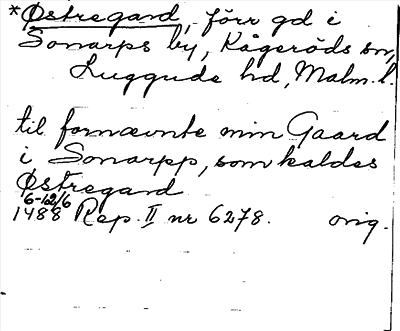 *Østregard, förr gd i
Sonarps by, Kågeröds sn,
Luggude hd, Malm. l.
til fornævnte min Gaard
i Sonarpp, som kaldes
Østregard
6-12/6
1488 Rep. II nr 6278. orig.